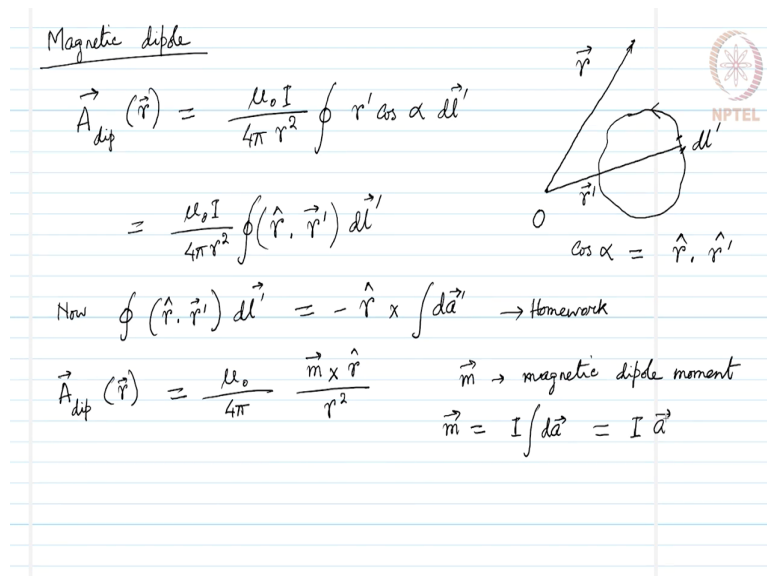 Magnetic dipole
NPTEL
A⃗_dip (r⃗) = μ₀I / 4πr² ∮ r' cos α dl⃗'
r⃗
dl'
r⃗'
O
= μ₀I / 4πr² ∮ (r̂ . r⃗') dl⃗'
cos α = r̂ . r̂'
Now ∮ (r̂ . r⃗') dl⃗' = - r̂ × ∫ da⃗' → Homework
A⃗_dip (r⃗) = μ₀ / 4π m⃗ × r̂ / r²
m⃗ → magnetic dipole moment
m⃗ = I ∫ da⃗ = I a⃗